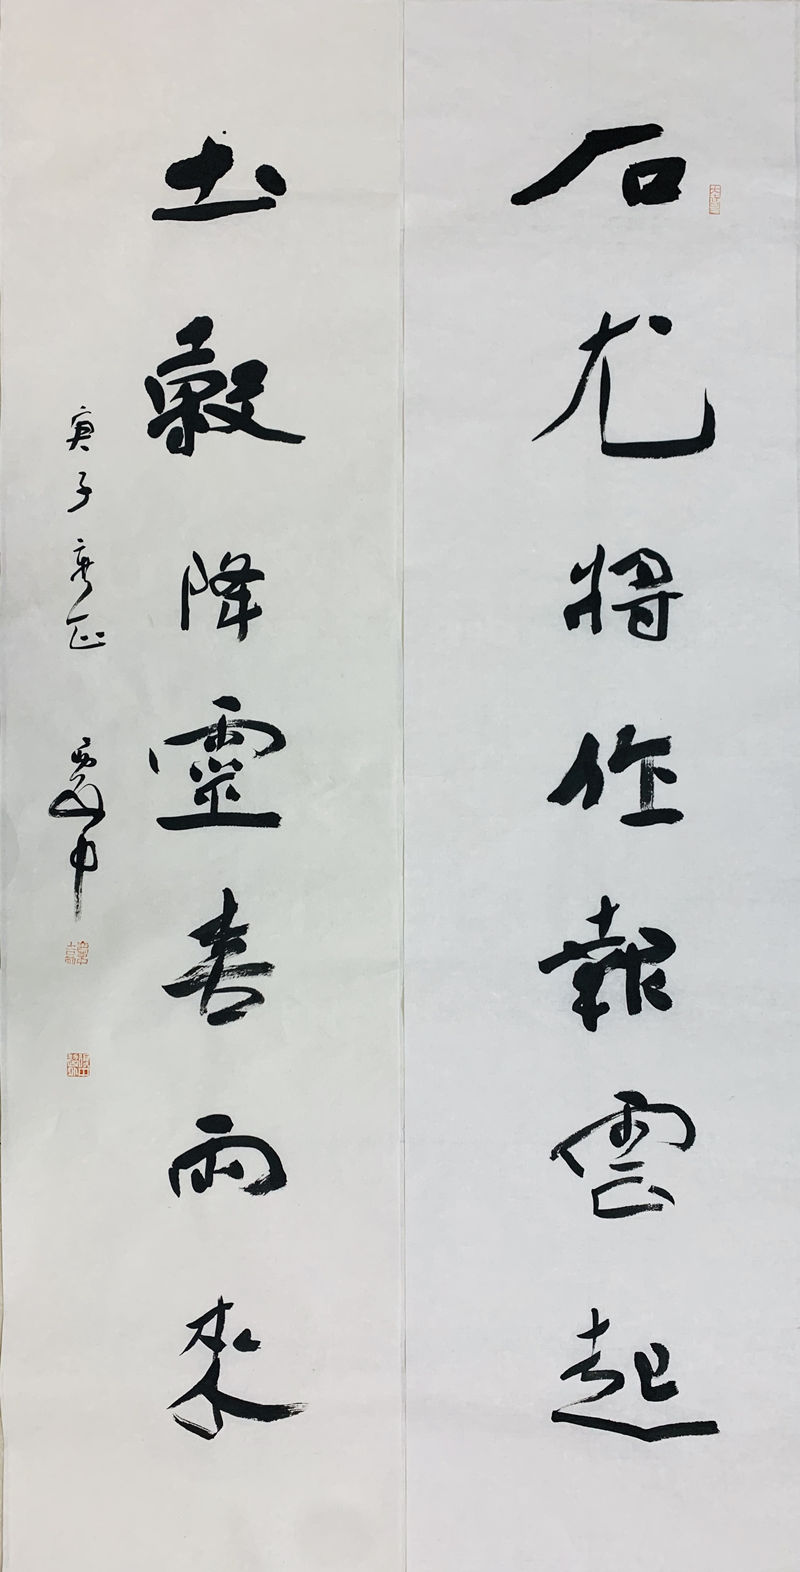 石尤將作報雲起
土穀降靈喜雨來
庚子